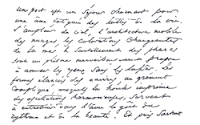 Un port est un séjour charmant pour
une âme fatiguée des luttes de la vie.
L'ampleur du ciel, l'architecture mobile
des nuages, les colorations changeantes
de la mer, le scintillement des phares
sont un prisme merveilleusement propre
à amuser les yeux sans les lasser. Les
formes élancées des navires au gréement
compliqué, auxquels la houle imprime
des oscillations harmonieuses, servent
à entretenir dans l'âme le goût du
rythme et de la beauté. Et puis, surtout